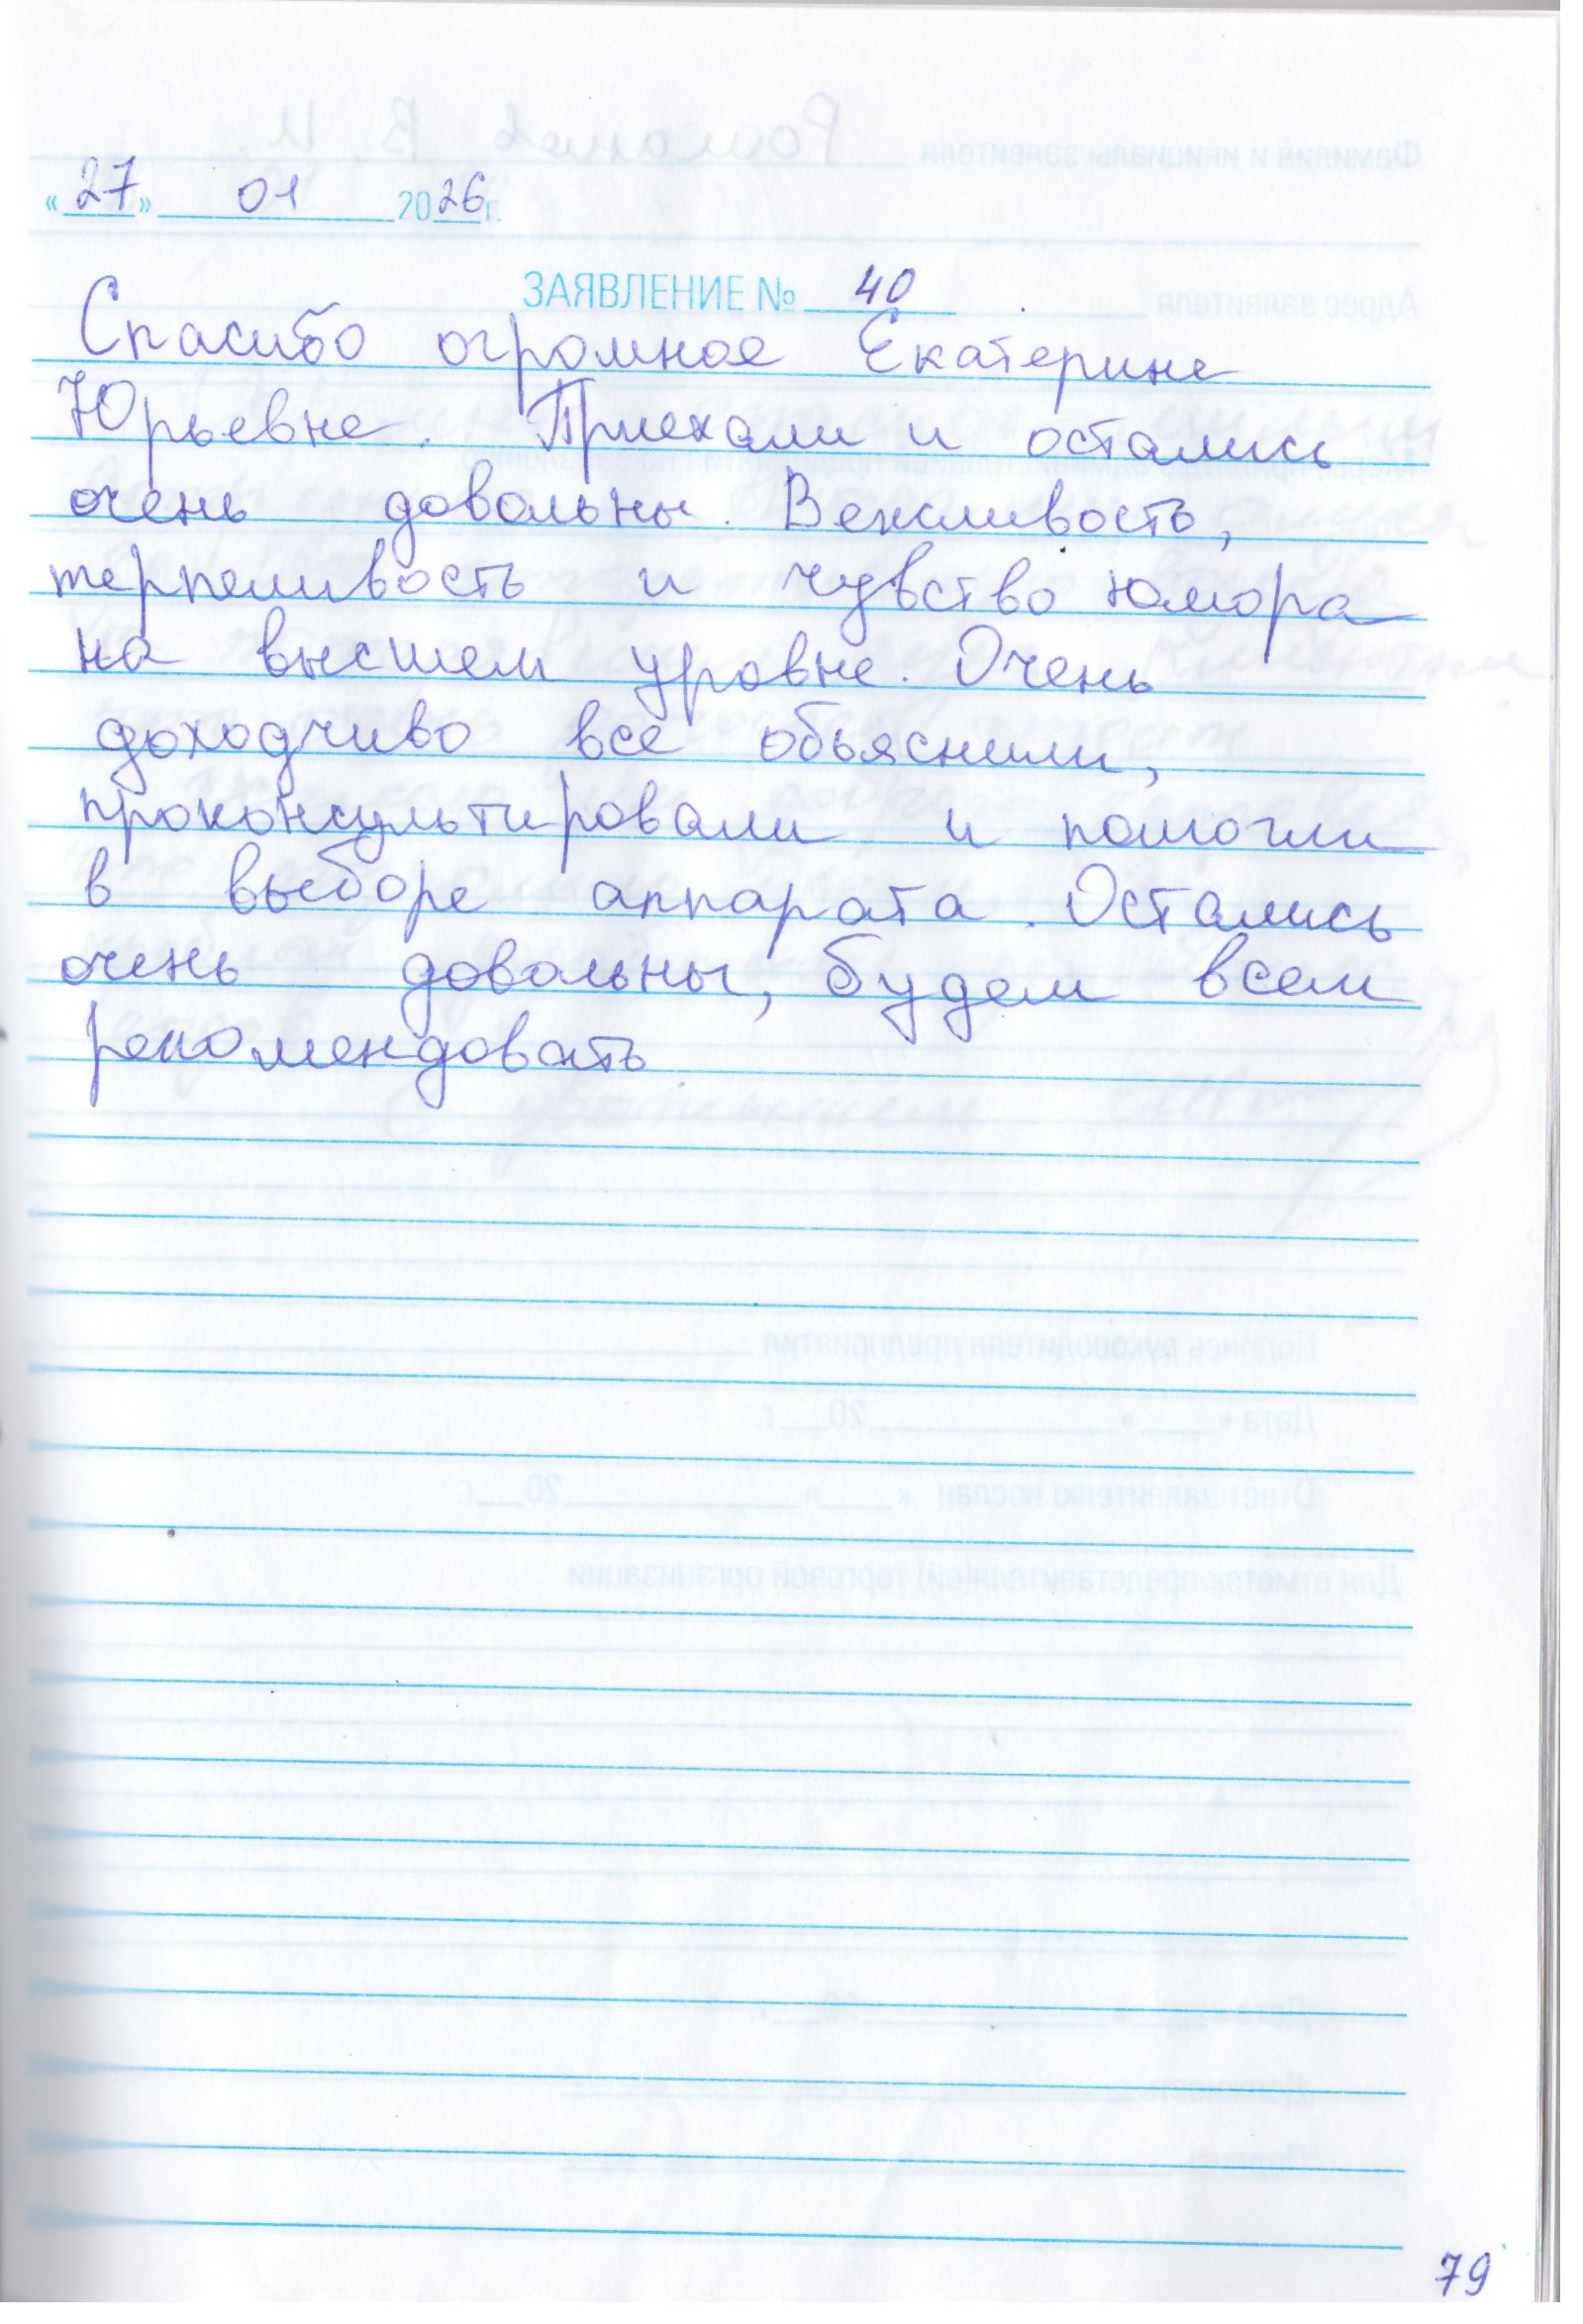 «27» 01 2026 г.
ЗАЯВЛЕНИЕ № 40
Спасибо огромное Екатерине
Юрьевне. Приехали и остались
очень довольны. Вежливость,
терпеливость и чувство юмора
на высшем уровне. Очень
доходчиво всё обьяснили,
проконсультировали и помогли
в выборе аппарата. Остались
очень довольны, будем всем
рекомендовать
79